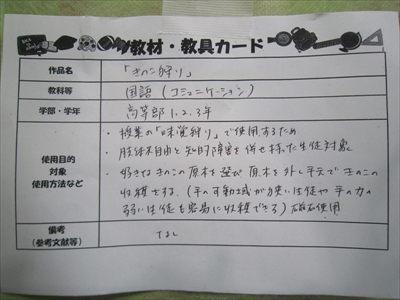 教材・教具カード
作品名 「きのこ狩り」
教科等 国語（コミュニケーション）
学部・学年 高等部1.2.3年
使用目的
対象
使用方法など
・授業の「味覚狩り」で使用するため
・肢体不自由と知的障害を併せ持った生徒対象
・好きなきのこの原木を選び原木を外し手元できのこの
収穫をする。（手の可動域が狭い生徒や手の力の
弱い生徒も容易に収穫できる）磁石使用
備考
（参考文献等）
なし